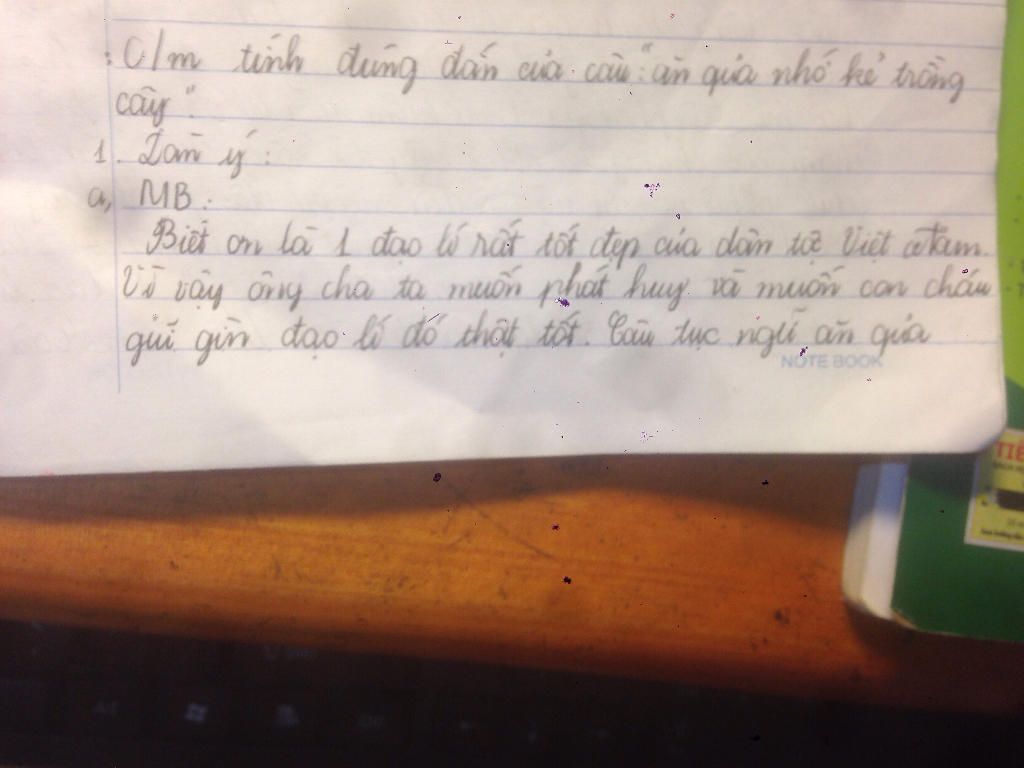 : C/m tính đúng đắn của câu: "ăn quả nhớ kẻ trồng
cây"
1. Dàn ý :
a, MB :
Biết ơn là 1 đạo lí rất tốt đẹp của dân tộc Việt Nam.
Vì vậy ông cha ta muốn phát huy và muốn con cháu
giữ gìn đạo lí đó thật tốt. Câu tục ngữ ăn quả
NOTE BOOK